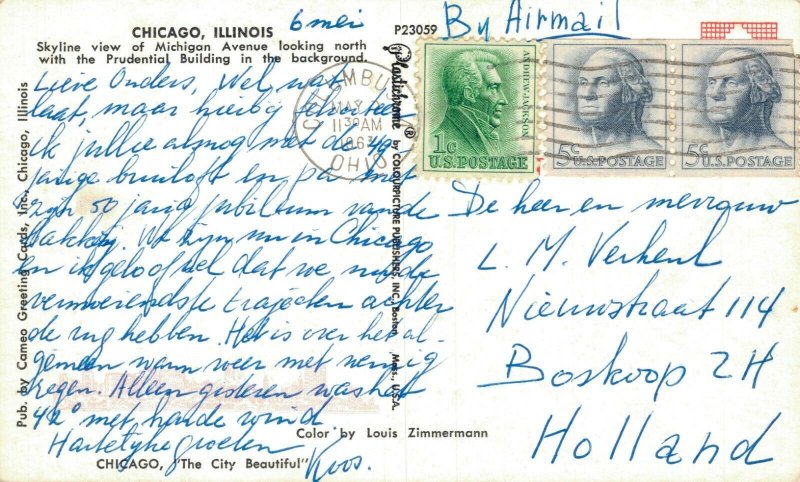 CHICAGO, ILLINOIS
6 mei
P23059
By Airmail
Skyline view of Michigan Avenue looking north
with the Prudential Building in the background.
Lieve Ouders, Wel, wat
laat, maar hierbij feliciteer
ik jullie alsnog met de 40
jarige bruiloft en pa met
zijn 50 jarig jubileum van de
bakkerij. We zijn nu in Chicago
en ik geloof wel dat we
vermoeiendste trajecten achter
de rug hebben. Het is over het al-
gemeen warm weer met weinig
regen. Alleen gisteren was het
42° met harde wind.
Hartelijke groeten
Koos.
Pub. by Cameo Greeting Cards, Inc., Chicago, Illinois
CHICAGO, "The City Beautiful"
Color by Louis Zimmermann
Plastichrome ® by COLOURPICTURE PUBLISHERS, INC., Boston Mass., U.S.A.
COLUMBUS
MAY
11 30 AM
OHIO
ANDREW JACKSON
1c
U.S. POSTAGE
5c
U.S. POSTAGE
5c
U.S. POSTAGE
De heer en mevrouw
L. M. Verheul
Nieuwstraat 114
Boskoop ZH
Holland